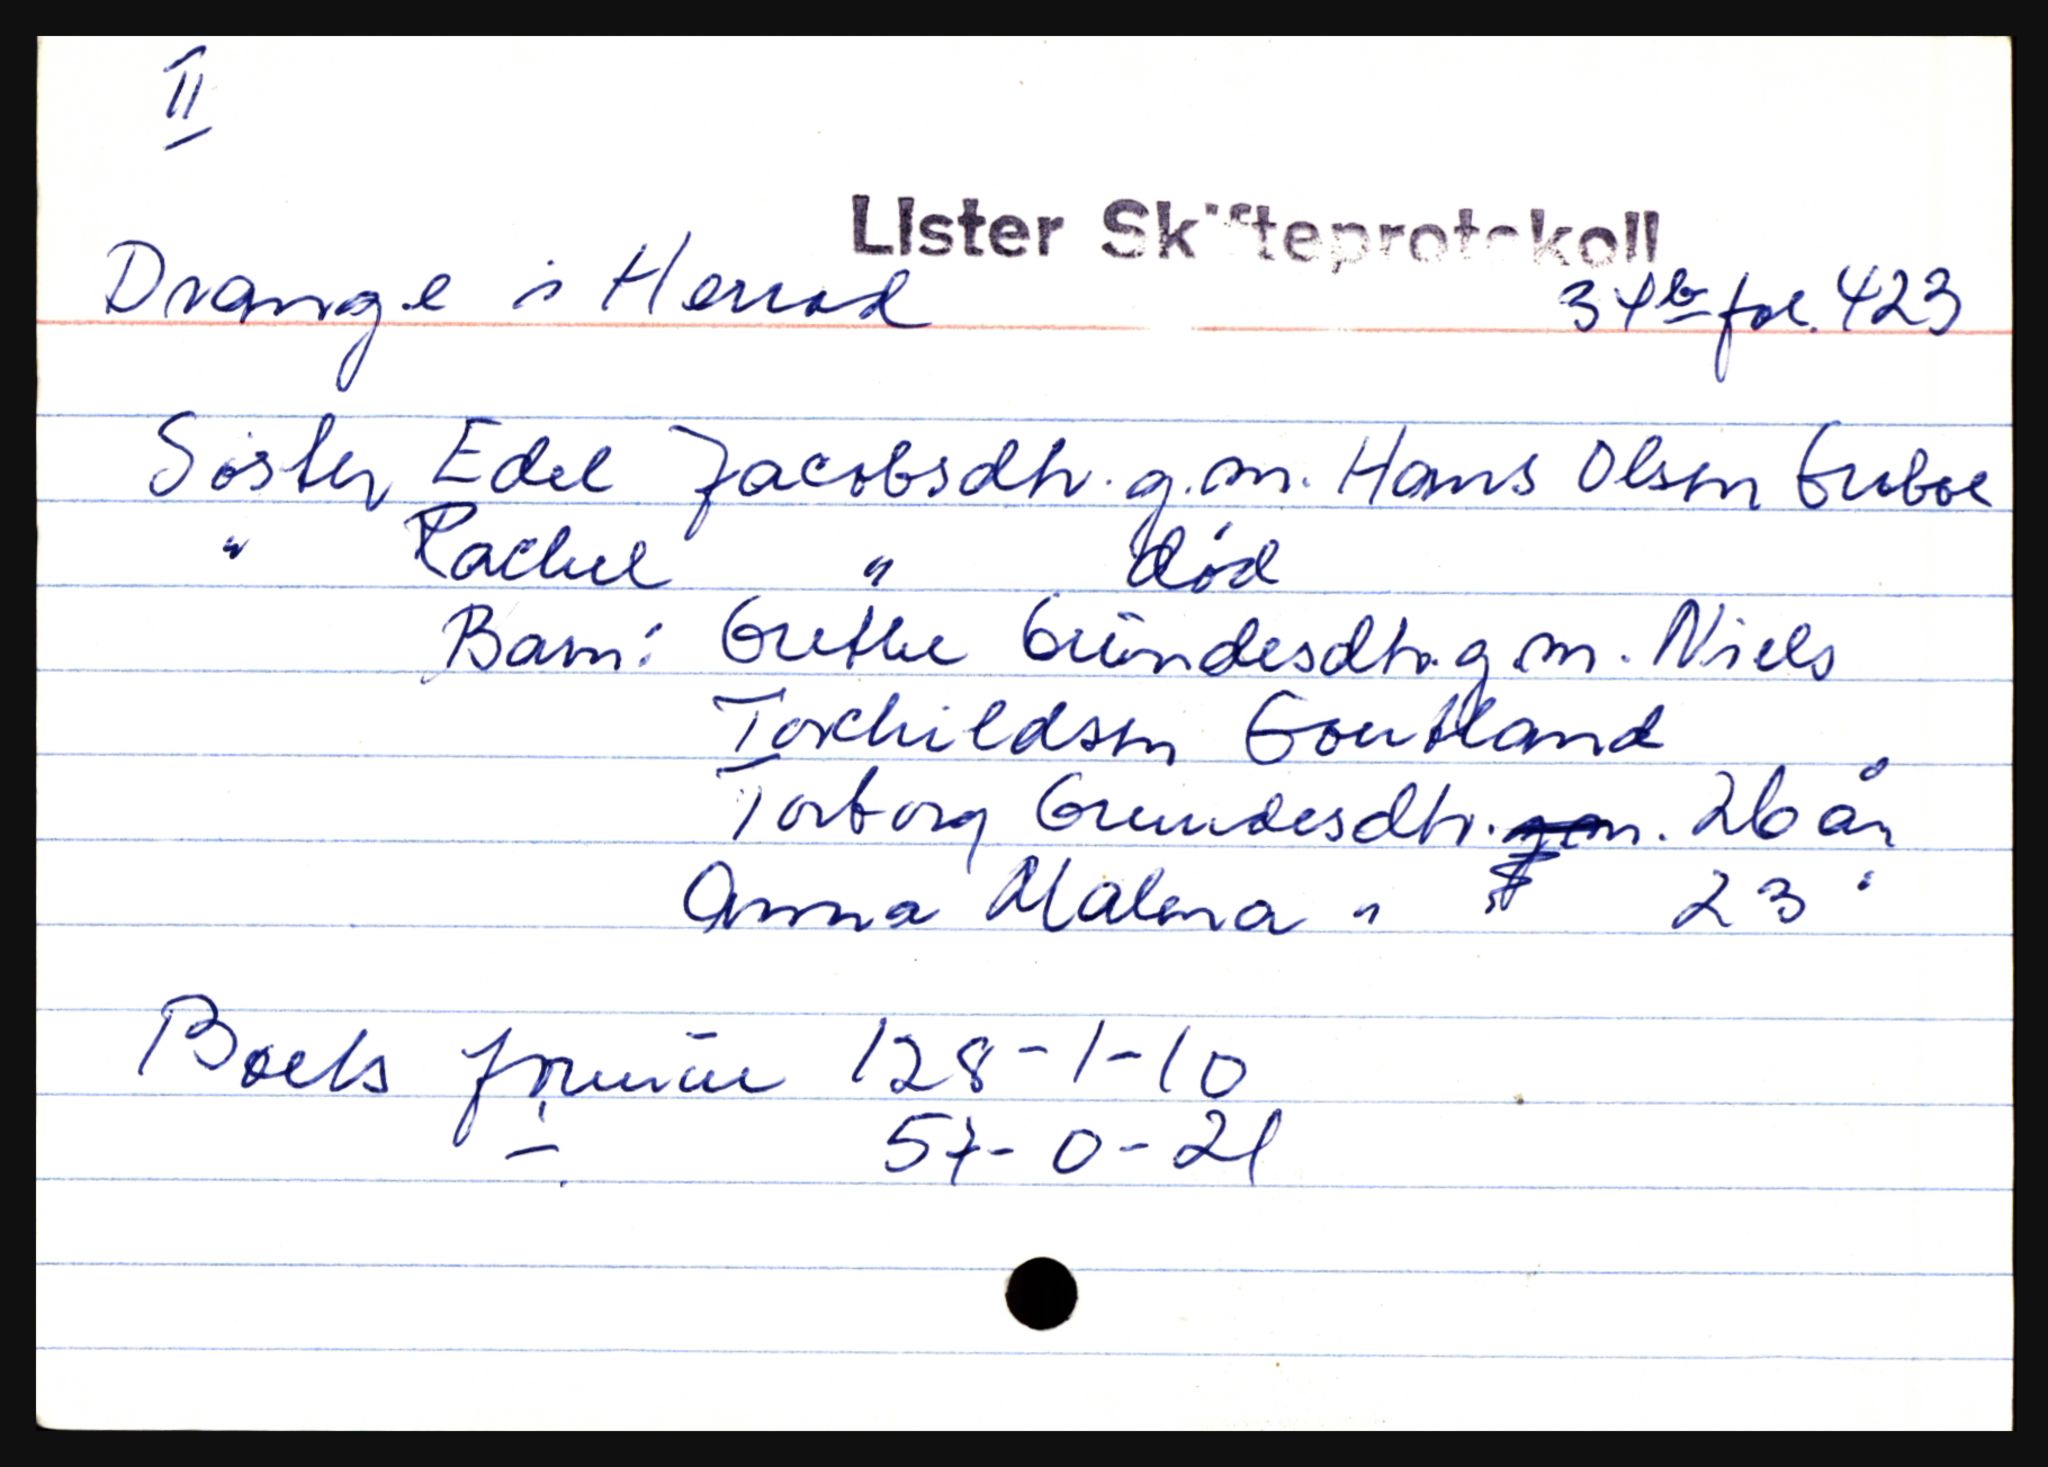 II
Lister Skifteprotokoll
Drange i Herred
34b fol. 423
Søster Edel Jacobsdtr. g.m. Hans Olsen Grøboe
" Rachel " død
Barn: Grethe Gündesdtr. g.m. Niels
Torchildsen Goutland
Torborg Gundesdtr. g.m. 26 år
Anna Malena " 23 "
Boets formüe 128-1-10
- 57-0-21